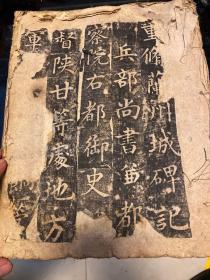 重脩蘭州城碑記
兵部尚書兼都
察院右都御史
督陝甘等處地方
軍